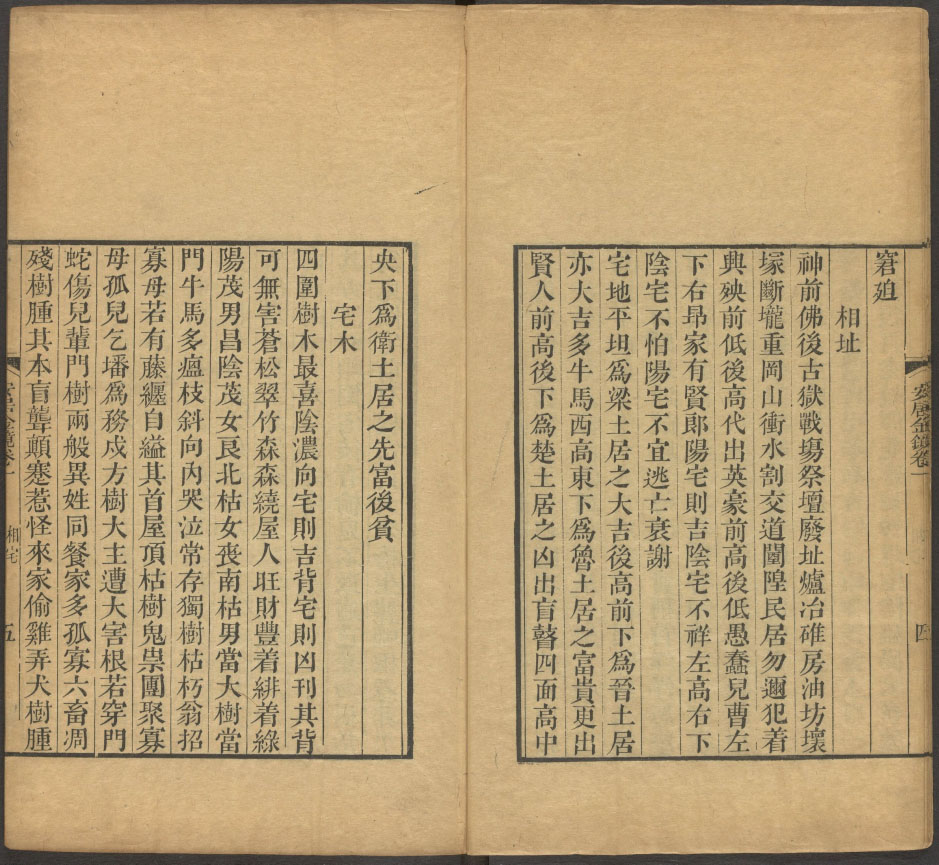 窘廹
相址
神前佛後古獄戰場祭壇廢址爐冶碓房油坊壞
塚斷壠重岡山衝水割交道闤隍民居勿邇犯着
典殃前低後高代出英豪前高後低愚蠢兒曹左
下右昻家有賢郞陽宅則吉陰宅不祥左高右下
陰宅不怕陽宅不宜逃亡衰謝
宅地平坦爲梁土居之大吉後高前下爲晉土居
亦大吉多牛馬西高東下爲魯土居之富貴更出
賢人前高後下爲楚土居之凶出盲瞽四面高中
安居金鏡卷一
四
央下爲衛土居之先富後貧
宅木
四圍樹木最喜陰濃向宅則吉背宅則凶刊其背
可無害蒼松翠竹森森繞屋人旺財豐着緋着綠
陽茂男昌陰茂女良北枯女喪南枯男當大樹當
門牛馬多瘟枝斜向內哭泣常存獨樹枯朽翁招
寡母若有藤纒自縊其首屋頂枯樹鬼祟團聚寡
母孤兒乞墦爲務戍方樹大主遭大害根若穿門
蛇傷兒輩門樹兩般異姓同餐家多孤寡六畜凋
殘樹腫其本盲聾顚蹇惹怪來家偷雞弄犬樹腫
安居金鏡卷一
相宅
五